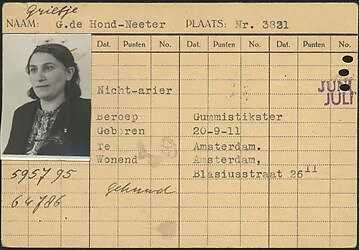 Grietje
NAAM: G.de Hond-Neeter PLAATS: Nr. 3831
Dat. Punten No. Dat. Punten No. Dat. Punten No.
Nicht-arier
JUNI
JULI
Beroep Gummistikster
Geboren 20-9-11
Te Amsterdam.
Wonend Amsterdam,
Blasiusstraat 26 II
595795 gehuwd
64786